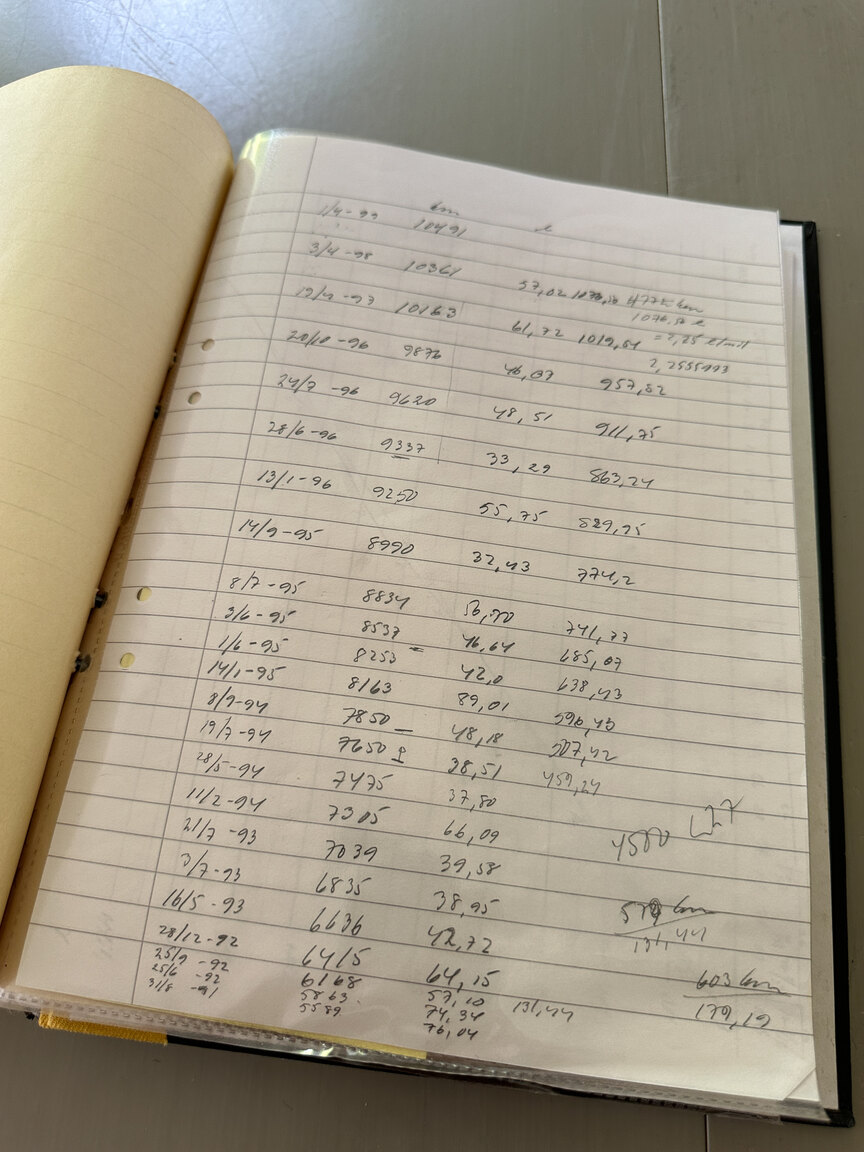 km l
1/4-99 10491
3/4-98 10361 57,02 4775 km
1076,52 l
19/4-97 10163 61,72 1019,54 = 2,25 l/mil
2,2555993
20/10-96 9876 46,07 957,82
24/7-96 9620 48,51 911,75
28/6-96 9337 33,29 863,24
13/1-96 9250 55,75 829,95
14/9-95 8990 32,43 774,2
8/7-95 8834 56,70 741,77
3/6-95 8537 46,64 685,07
1/6-95 8253 42,0 638,43
14/1-95 8163 89,01 596,43
8/9-94 7850 48,18 507,42
19/7-94 7650 38,51 459,24
28/5-94 7475 37,80
11/2-94 7305 66,09 4500
21/7-93 7039 39,58
3/7-93 6835 38,95 579 km
131,44
16/5-93 6636 42,72
28/12-92 6415 64,15 603 km
179,19
25/9-92 6168 57,10 131,44
25/6-92 5863 74,34
31/8-91 5589 76,04